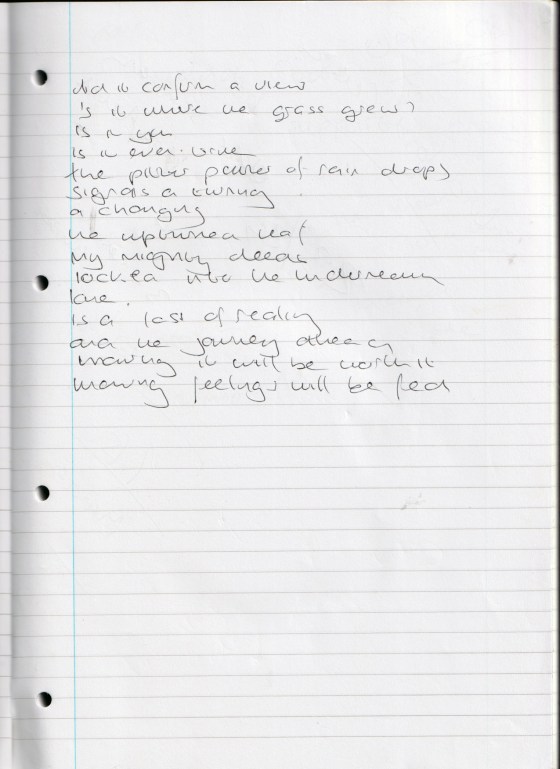 did it confirm a view
is it where the grass grew?
is it you
is it ever. 
the pitter patter of rain drops
signals a turning
a changing
the upturned leaf
my mighty deeds
locked into the
lane.
is a loss of reality
and the journey already
knowing it will be worth it
knowing feelings will be fed